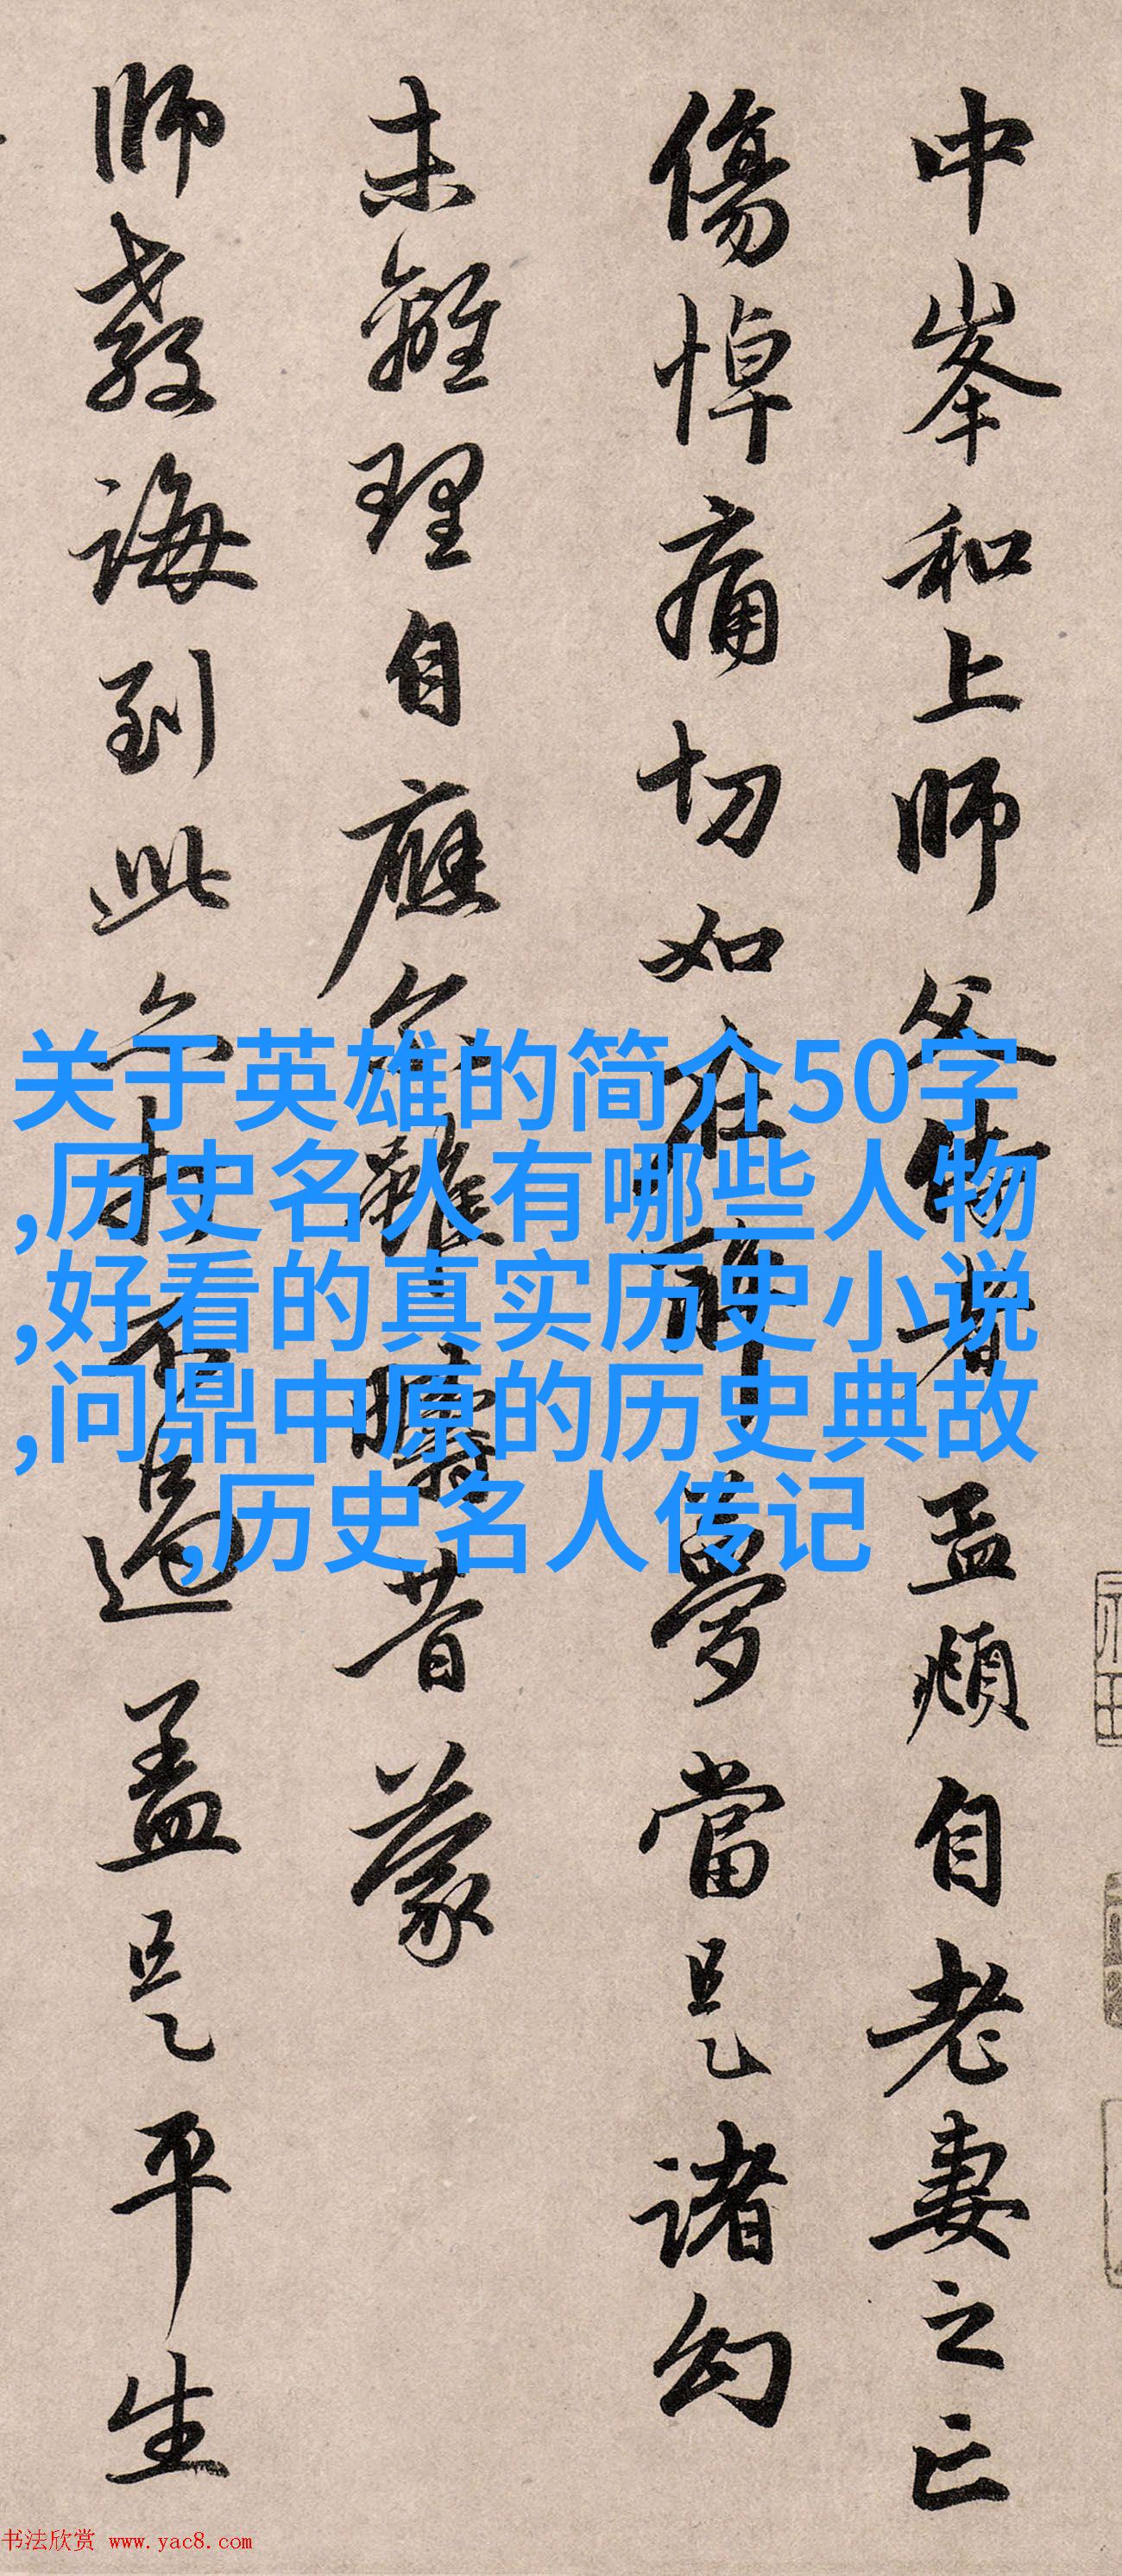 中峯和上師父侍者孟頫自老妻之亡
傷悼痛切如在醉夢當是諸幻
未離理自應尒雖疇昔蒙
師教誨到此亦打不過盖是平生
关于英雄的简介50字
,历史名人有哪些人物
,好看的真实历史小说
,问鼎中原的历史典故
,历史名人传记
书法欣赏 www.yac8.com